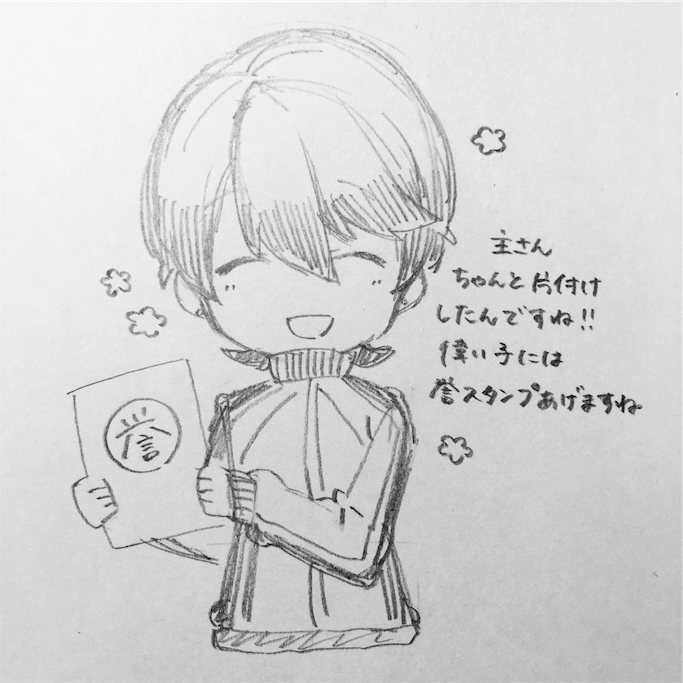 主さん
ちゃんと片付け
したんですね!!
偉い子には
誉スタンプあげますね
誉